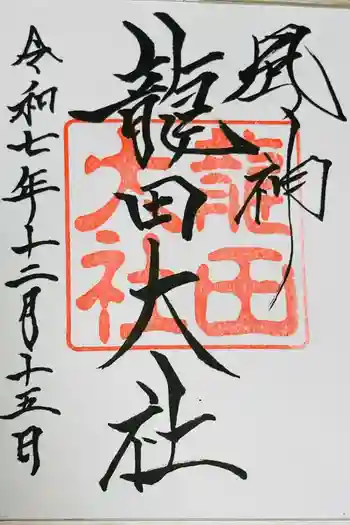 風の神
龍田大社
龍田大社
令和七年十二月十五日